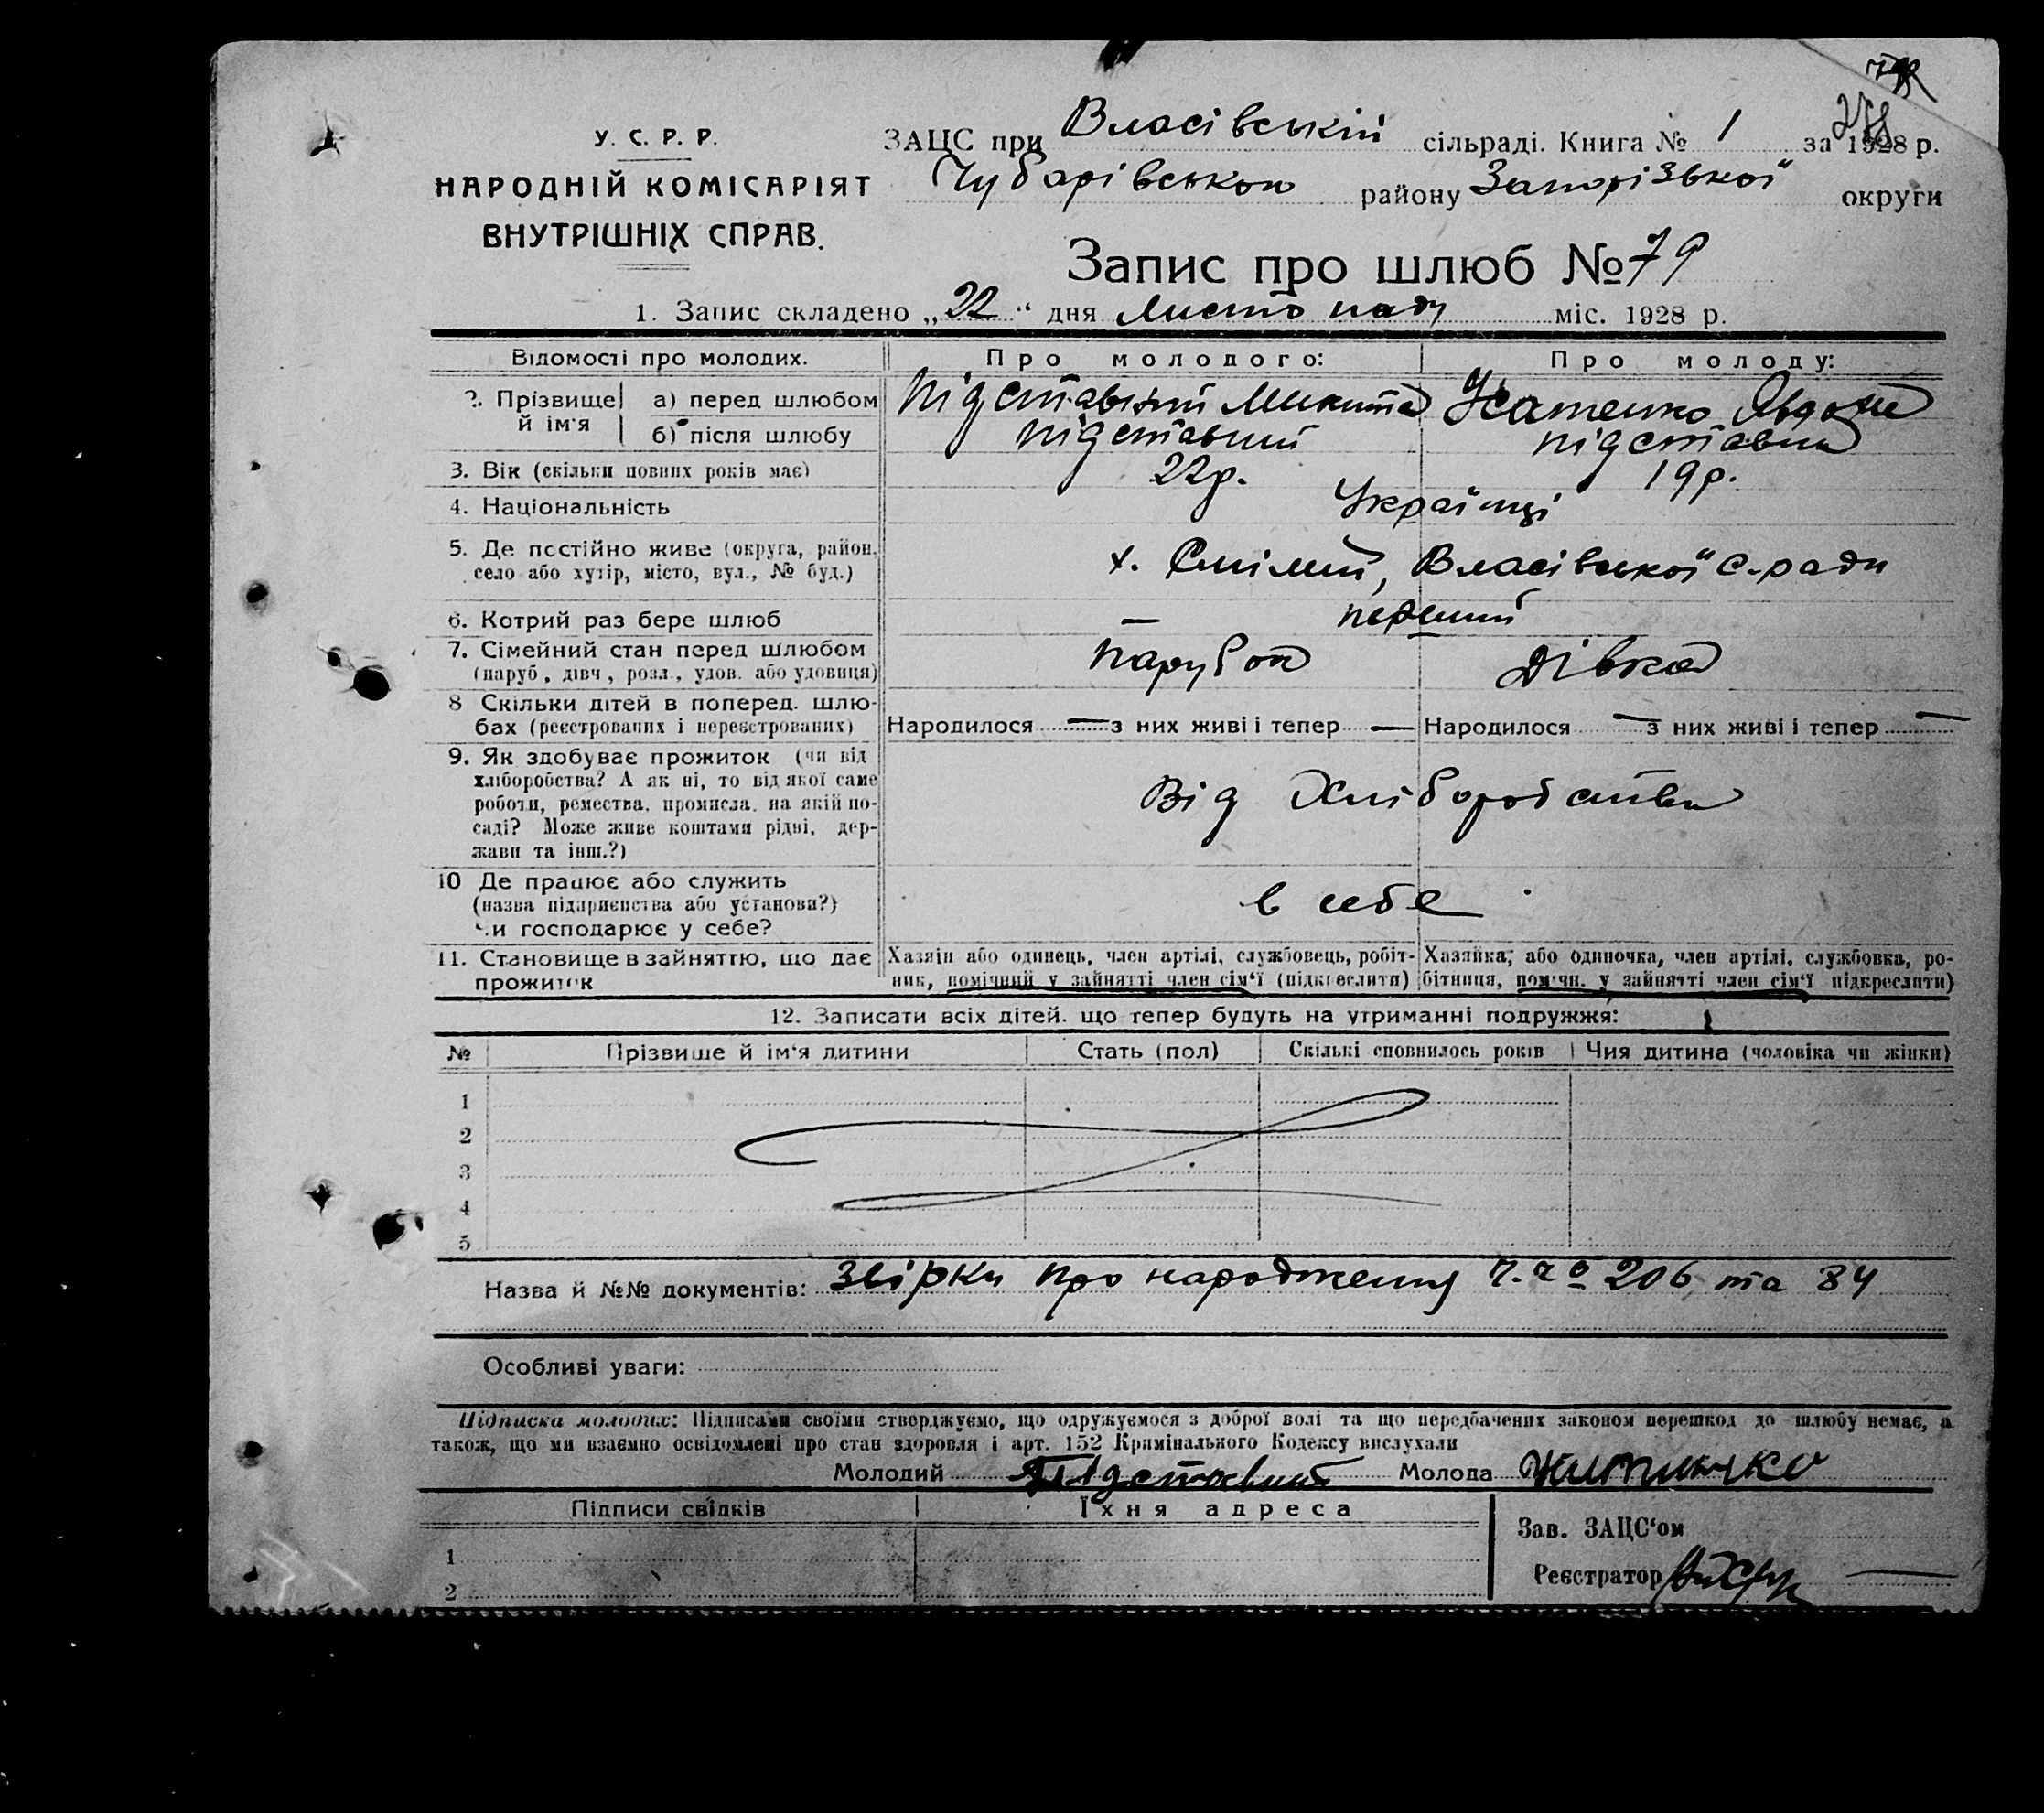 У. С. Р. Р.
НАРОДНІЙ КОМІСАРІЯТ
ВНУТРІШНІХ СПРАВ.
ЗАЦС при Власівській сільраді. Книга № 1 за 1928 р.
Чубарівського району Запорізької округи
Запис про шлюб № 79
1. Запис складено „22“ дня Листопаду міс. 1928 р.
Відомості про молодих. Про молодого: Про молоду:
2. Прізвище й ім'я а) перед шлюбом Підставний Микита Явдоха
б) після шлюбу Підставний Підставна
3. Вік (скільки повних років має) 22р. 19р.
4. Національність Українці
5. Де постійно живе (округа, район, село або хутір, місто, вул., № буд.) х. Смілий, Власівської с-ради
6. Котрий раз бере шлюб перший
7. Сімейний стан перед шлюбом (паруб., дівч., розл., удов. або удовиця) Парубок Дівка
8 Скільки дітей в поперед. шлюбах (реєстрованих і нереєстрованих) Народилося — з них живі і тепер — Народилося — з них живі і тепер —
9. Як здобуває прожиток (чи від
хліборобства? А як ні, то від якої саме
роботи, ремества, промисла, на якій по-
саді? Може живе коштами рідні, дер-
жави та інш.?) Від Хліборобства
10 Де працює або служить
(назва підприємства або установи?)
чи господарює у себе? в себе
11. Становище в зайняттю, що дає прожиток
Хазяїн або одинець, член артілі, службовець, робіт-
ник, помічний у зайнятті член сім'ї (підкреслити)
Хазяйка, або одиночка, член артілі, службовка, ро-
бітниця, помічн. у зайнятті член сім'ї підкреслити)
12. Записати всіх дітей, що тепер будуть на утриманні подружжя:
№ Прізвище й ім'я дитини Стать (пол) Скількі сповнилось років Чия дитина (чоловіка чи жінки)
1
2
3
4
5
Назва й №№ документів: Звірки про народження ч. 206 та 84
Особливі уваги:
Підписка молодих: Підписами своїми стверджуємо, що одружуємося з доброї волі та що передбачених законом перешкод до шлюбу немає, а
також, що ми взаємно освідомлені про стан здоровля і арт. 152 Крімінального Кодексу вислухали
Молодий Підставний Молода
Підписи свідків Їхня адреса
Зав. ЗАЦС'ом
1
Реєстратор
2